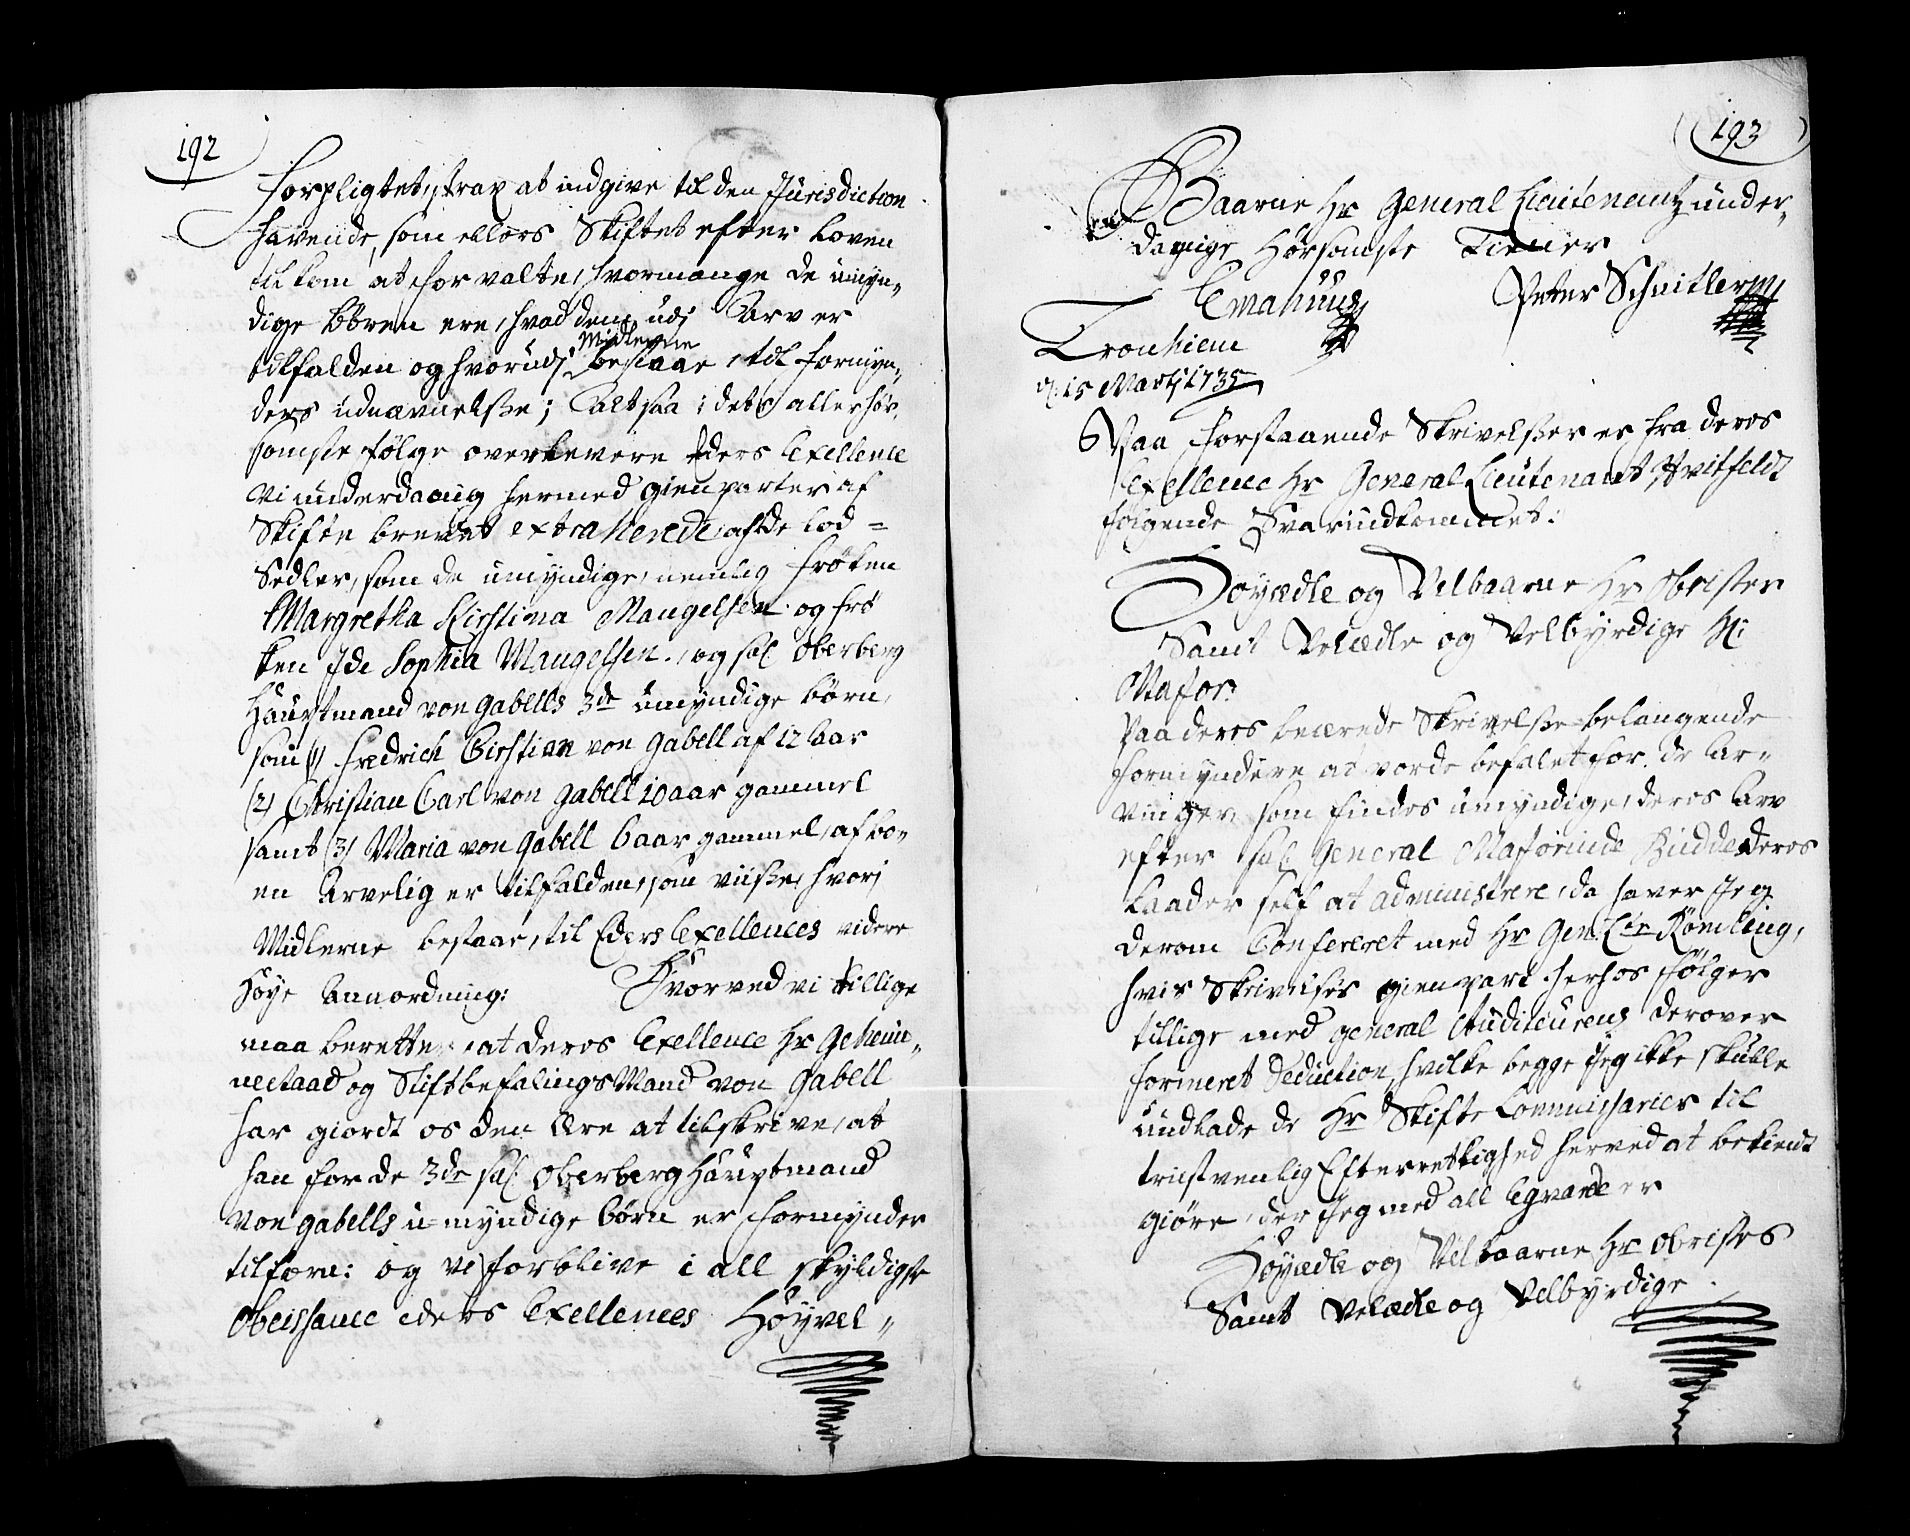 192
forpligtet, strax at indgive til den Jurisdiction
havende, som ellers Skiftet efter Loven
tilkom at forvalte, hvormange de umyn„
dige börn ere, hvad dem udj Arv er
tilfalden og hvorudj Midlerne bestaar, til formyn„
ders udnævnelsse; Altsaa i dets allerhör„
somste fölge overlevere Eders Exellence
vi underdanig hermed gienparter af
Skifte brevet extraherede, af de Lod=
Sedler, som de umyndige, nemlig fröken
Margretha Kirstina Mangelsen og frö
ken Ide Sophia Mangelsen, og sal. Oberberg
Hauptmand von Gabells 3de umyndige börn,
som (1) Fredrich Christian von Gabell af 12 Aar
(2) Christian Carl von Gabell 10 aar gammel
samt (3) Maria von Gabell 6 aar gammel, af bo„
en Arvelig er tilfalden, som viisse, hvorj
Midlerne bestaar, til Eders Exellences videre
Höye Anordning: Hvorved vi tillige
maa berette, at deres Exellence Hr Geheim„
neraad og Stiftbefalings Mand von Gabell
har giordt os den Ære at tilskrive, at
han for de 3de sal. Oberberg Hauptmand
von Gabells u-myndige börn er formynder
tilforn: og vi forblive i all skyldigste
Obeissance eders Exellences Höyvel„
193
Baarne Hr General Lieutenantz under„
danige Hörsomste Tiener
Emahuus
Peter Schnitler
Tronhiem
d. 15 Martj 1735
Paa forstaaende Skrivelsser er fra deres
Exellence Hr General Lieutenant Hvitfeldt
fölgende Svar indkommet:
Höyædle og Velbaarne Hr Obrister
Samt Velædle og Velbyrdige Hr
Major:
Paa deres beærede Skrivelsse belangende
formyndere at vorde befalet for de Ar„
vinger, som findes umyndige, deres Arv
efter sal. General Majorinde Budde deres
Laader self at administrere, da haver Jeg
derom Confereret med Hr Gen. Ltn Römling,
hvis Skrivelses gienpart herhos fölger
tillige med General Auditeurens derover
formeret Deduction, hvilke begge Jeg ikke skulle
undlade de Hr Skifte Commissarier til
tienstvenlig Efterretlighed herved at bekiendt
giöre, der Jeg med all Egvarde er
Höyædle og Velbaarne Hr Obristes
Samt Velædle og Velbyrdige